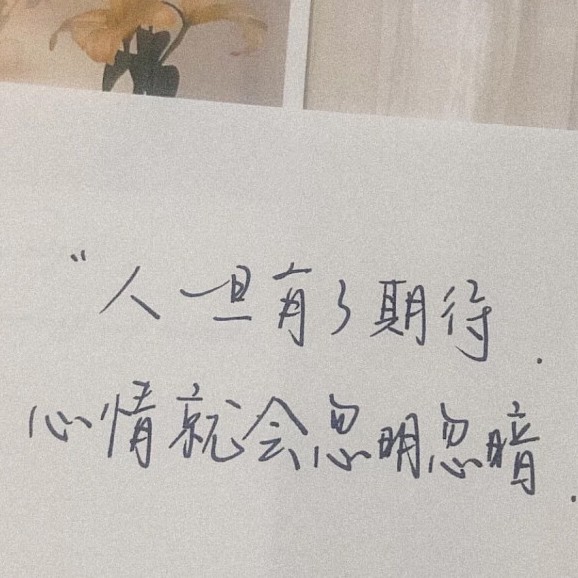 “人一旦有了期待.
心情就会忽明忽暗.